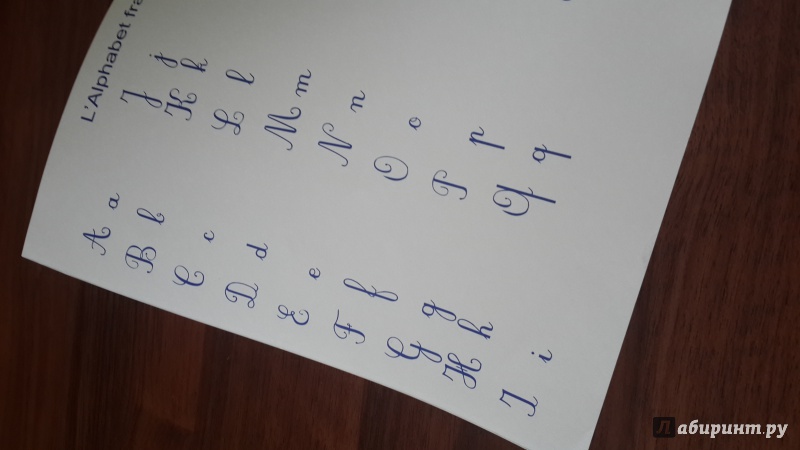 L'Alphabet fra
A a
B b
C c
D d
E e
F f
G g
H h
I i
J j
K k
L l
M m
N n
O o
P p
Q q
Лабиринт.ру